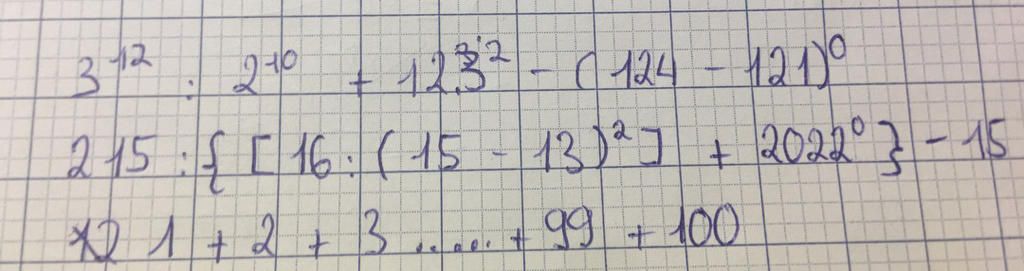 3¹² : 2¹⁰ + 12.3² - (124 - 121)⁰
215 : { [ 16 : (15 - 13)² ] + 2022⁰ } - 15
1 + 2 + 3 ...... + 99 + 100